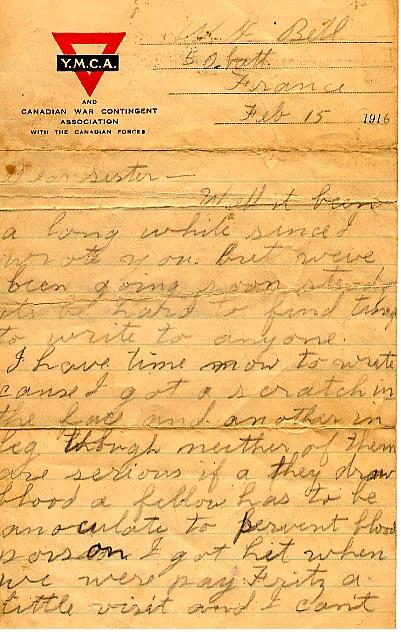 Y.M.C.A.
AND
CANADIAN WAR CONTINGENT
ASSOCIATION
WITH THE CANADIAN FORCES
Bell
5 Batt.
France
Feb 15 1916
Dear sister —
Well it been
a long while since I
wrote you. but we've
been going
its be hard to find time
to write to anyone.
I have time mow to write
cause I got a scratch in
the and another in
leg though neither of them
are serious if a they draw
blood a fellow has to be
anoculate to pervent blood
poison I got hit when
we were pay Fritz a
little visit and I can't